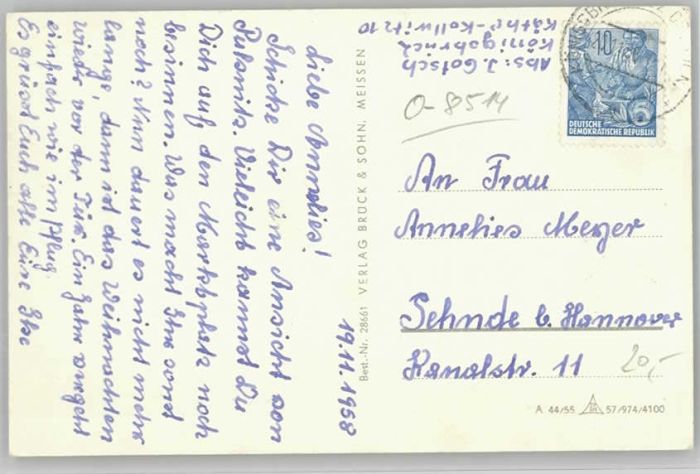 19.11.1958
Liebe Annelies!
Schicke Dir eine Ansicht von
Pulsnitz. Vieleicht kannst Du
Dich auf den Marktplatz noch
besinnen. Was macht Ihr sonst
noch? Nun dauert es nicht mehr
lange, dann ist das Weihnachten
wieder vor der Tür. Ein Jahr vergeht
einfach wie im Flug.
Es grüsst Euch alle Eure Ilse
Best.-Nr. 28661 VERLAG BRÜCK & SOHN, MEISSEN
Abs: J. Gotsch
Königsbrück
Käthe-Kollwitz 10
O-8514
10
DEUTSCHE
DEMOKRATISCHE REPUBLIK
An Frau
Annelies Meyer
Sehnde b. Hannover
Kanalstr. 11
20,-
A 44/55 57/974/4100